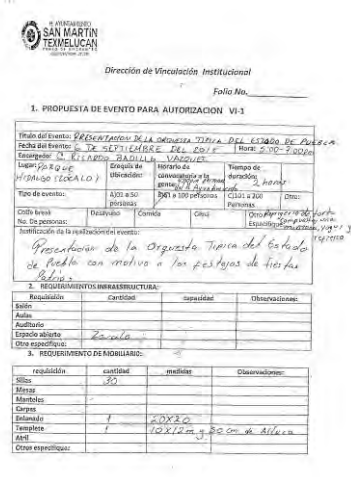 H. AYUNTAMIENTO
SAN MARTÍN
TEXMELUCAN
Dirección de Vinculación Institucional
Folio No.
1. PROPUESTA DE EVENTO PARA AUTORIZACION VI-1
Titulo del Evento: PRESENTACION DE LA ORQUESTA TIPICA DEL ESTADO DE PUEBLA
Fecha del Evento: 6 DE SEPTIEMBRE DEL 2018 Hora: 5:00-7:00
Encargado: C. RICARDO BADILLO VAZQUEZ
Lugar: PARQUE HIDALGO (ZOCALO)
Croquis de Ubicación:
Horario de convocatoria a la gente:
Tiempo de duración: 2 horas
Tipo de evento:
A)01 a 50 personas
B)51 a 100 personas
C)101 a 200 Personas
Otro:
Coffe break
No. De personas:
Desayuno
Comida
Cena
Otro
Especifique:
Justificación de la realización del evento:
Presentación de la Orquesta Tipica del Estado
de Puebla con motivo a los festejos de fiestas
Patrias.
2. REQUERIMIENTOS INFRAESTRUCTURA:
Requisición Cantidad capacidad Observaciones:
Salón
Aulas
Auditorio
Espacio abierto Zocalo
Otro especifique:
3. REQUERIMIENTO DE MOBILIARIO:
requisición cantidad medidas Observaciones:
Sillas 30
Mesas
Manteles
Carpas
Enlonado 1 20X20
Templete 1 10X12m y 50 cm de Altura
Atril
Otros especifique: